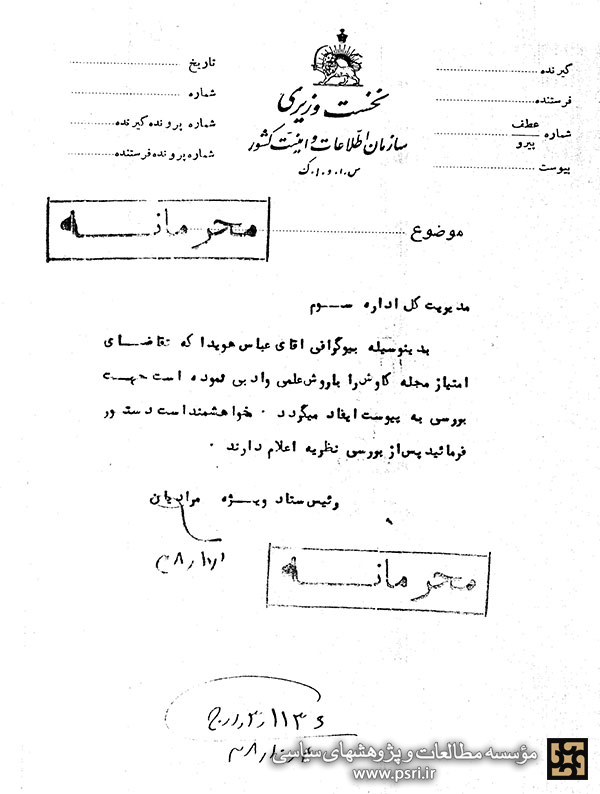 گیرنده
فرستنده
شماره عطف
پیرو
پیوست
نخست وزیری
سازمان اطلاعات و امنیت کشور
س.ا.و.ا.ک
تاریخ
شماره
شماره پرونده گیرنده
شماره پرونده فرستنده
موضوع
محرمانه
مدیریت کل اداره سوم
بدینوسیله بیوگرافی آقای عباس هویدا که تقاضای
امتیاز مجله کاوش را با روش علمی و ادبی نموده است جهت
بررسی به پیوست ایفاد میگردد . خواهشمند است دستور
فرمائید پس از بررسی نظریه اعلام دارند .
رئیس ستاد ویژه مرادیان
محرمانه
مؤسسه مطالعات و پژوهشهای سیاسی
www.psri.ir